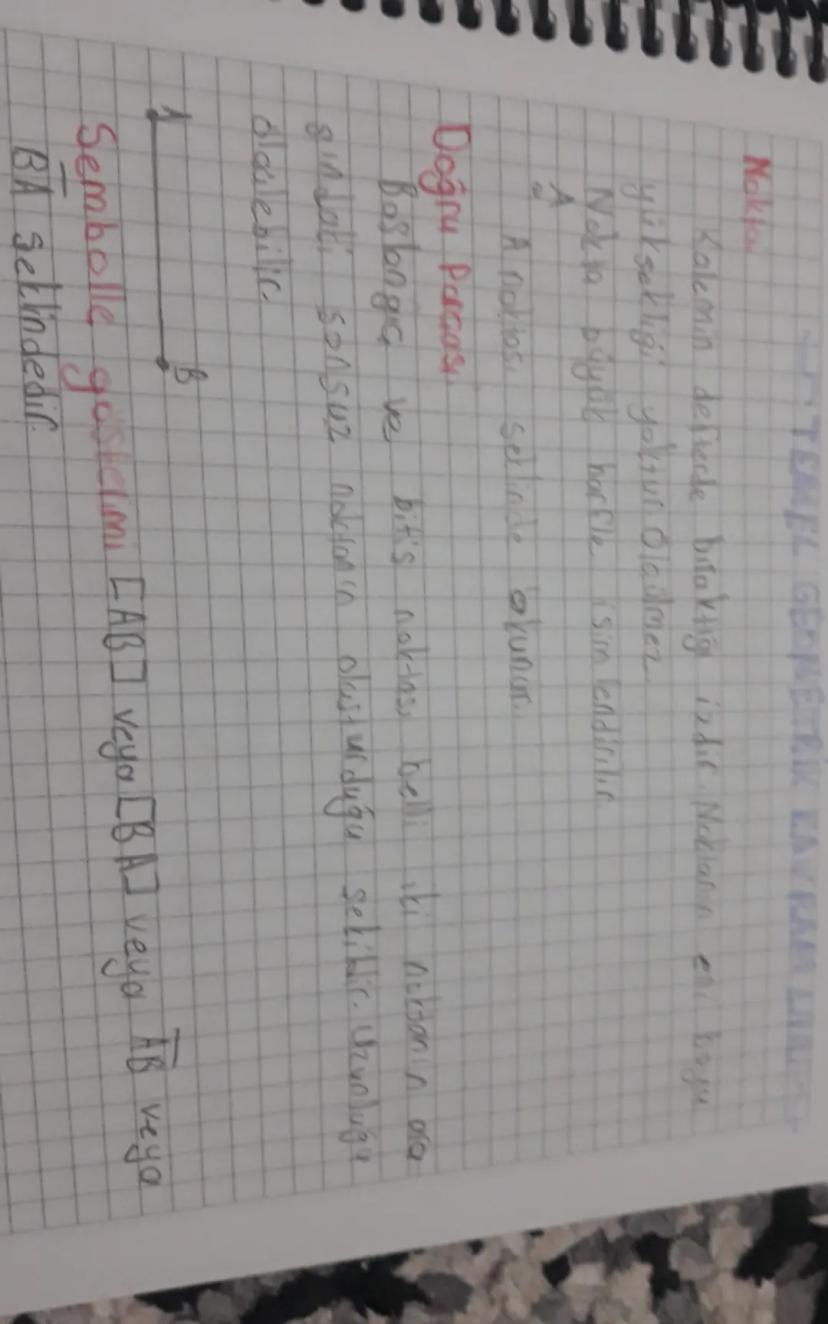 TEMEL GEOMETRİK KAVRAMLAR
Nokta
Kalemin defterde bıraktığı izdir. Noktanın eni boyu
yüksekliği yoktur Ölçülmez.
Nokta büyük harfle isimlendirilir
A
A noktası şeklinde okunur.
Doğru Parçası
Başlangıç ve bitiş noktası belli iki noktanın ara
sındaki sonsuz noktanın oluşturduğu şekildir. Uzunluğu
ölçülebilir.
A B
Sembolle gösterimi [AB] veya [BA] veya A̅B̅ veya
B̅A̅ şeklindedir.